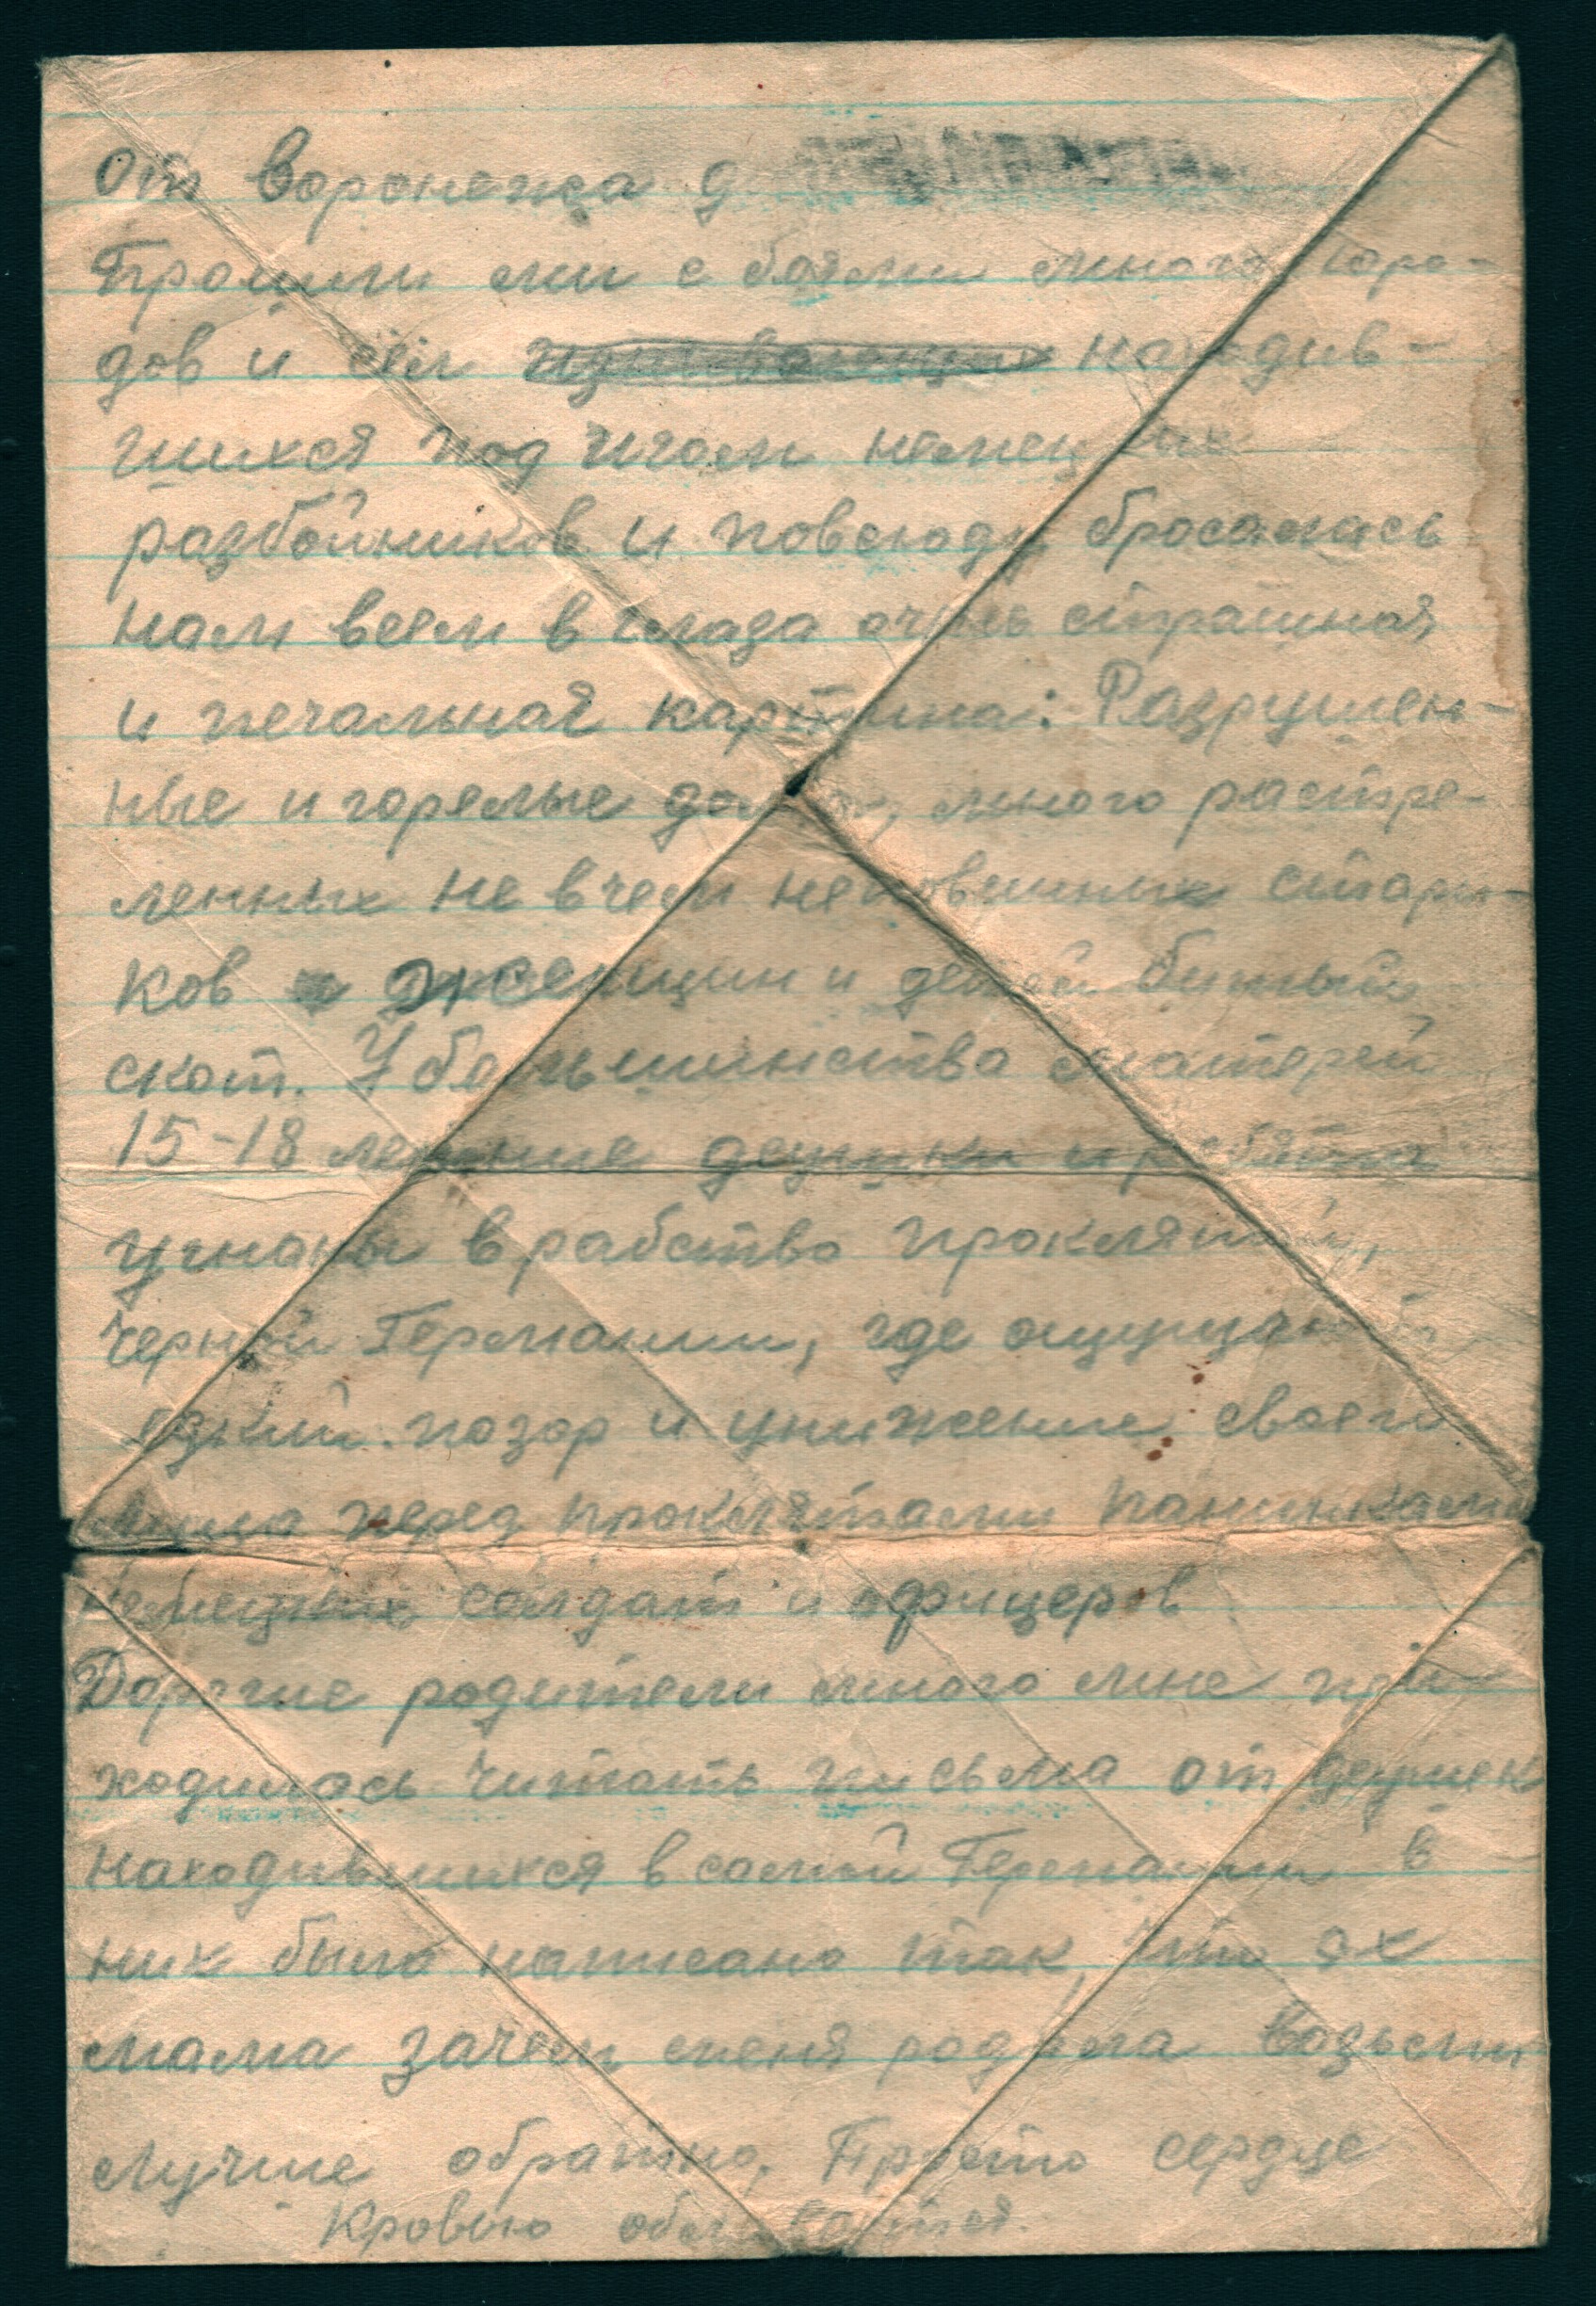 От Воронежа д
Прошли ми с боями много горо-
дов и сёл находив-
шихся под игом немецких
разбойников и повсюду бросалась
нам всем в глаза очень страшная
и печальная картина: Разрушен-
ные и горелые дома, много растре-
ленных не в чем неповинных стари-
ков женщин и детей битый
скот. У большинства матерей
15-18 летние деушки и ребята
угнаны в рабство проклятой,
черной Германии, где ощущают
едкий позор и унижение своего
лица перед проклятами
немецких солдат и офицеров
Дорогие родители много мне при-
ходилось читать письма от деушек
находившихся в самой Германии в
них было написано так, что ох
мама зачем меня родила возьми
лучше обратно, Просто сердце
Кровью обливается.